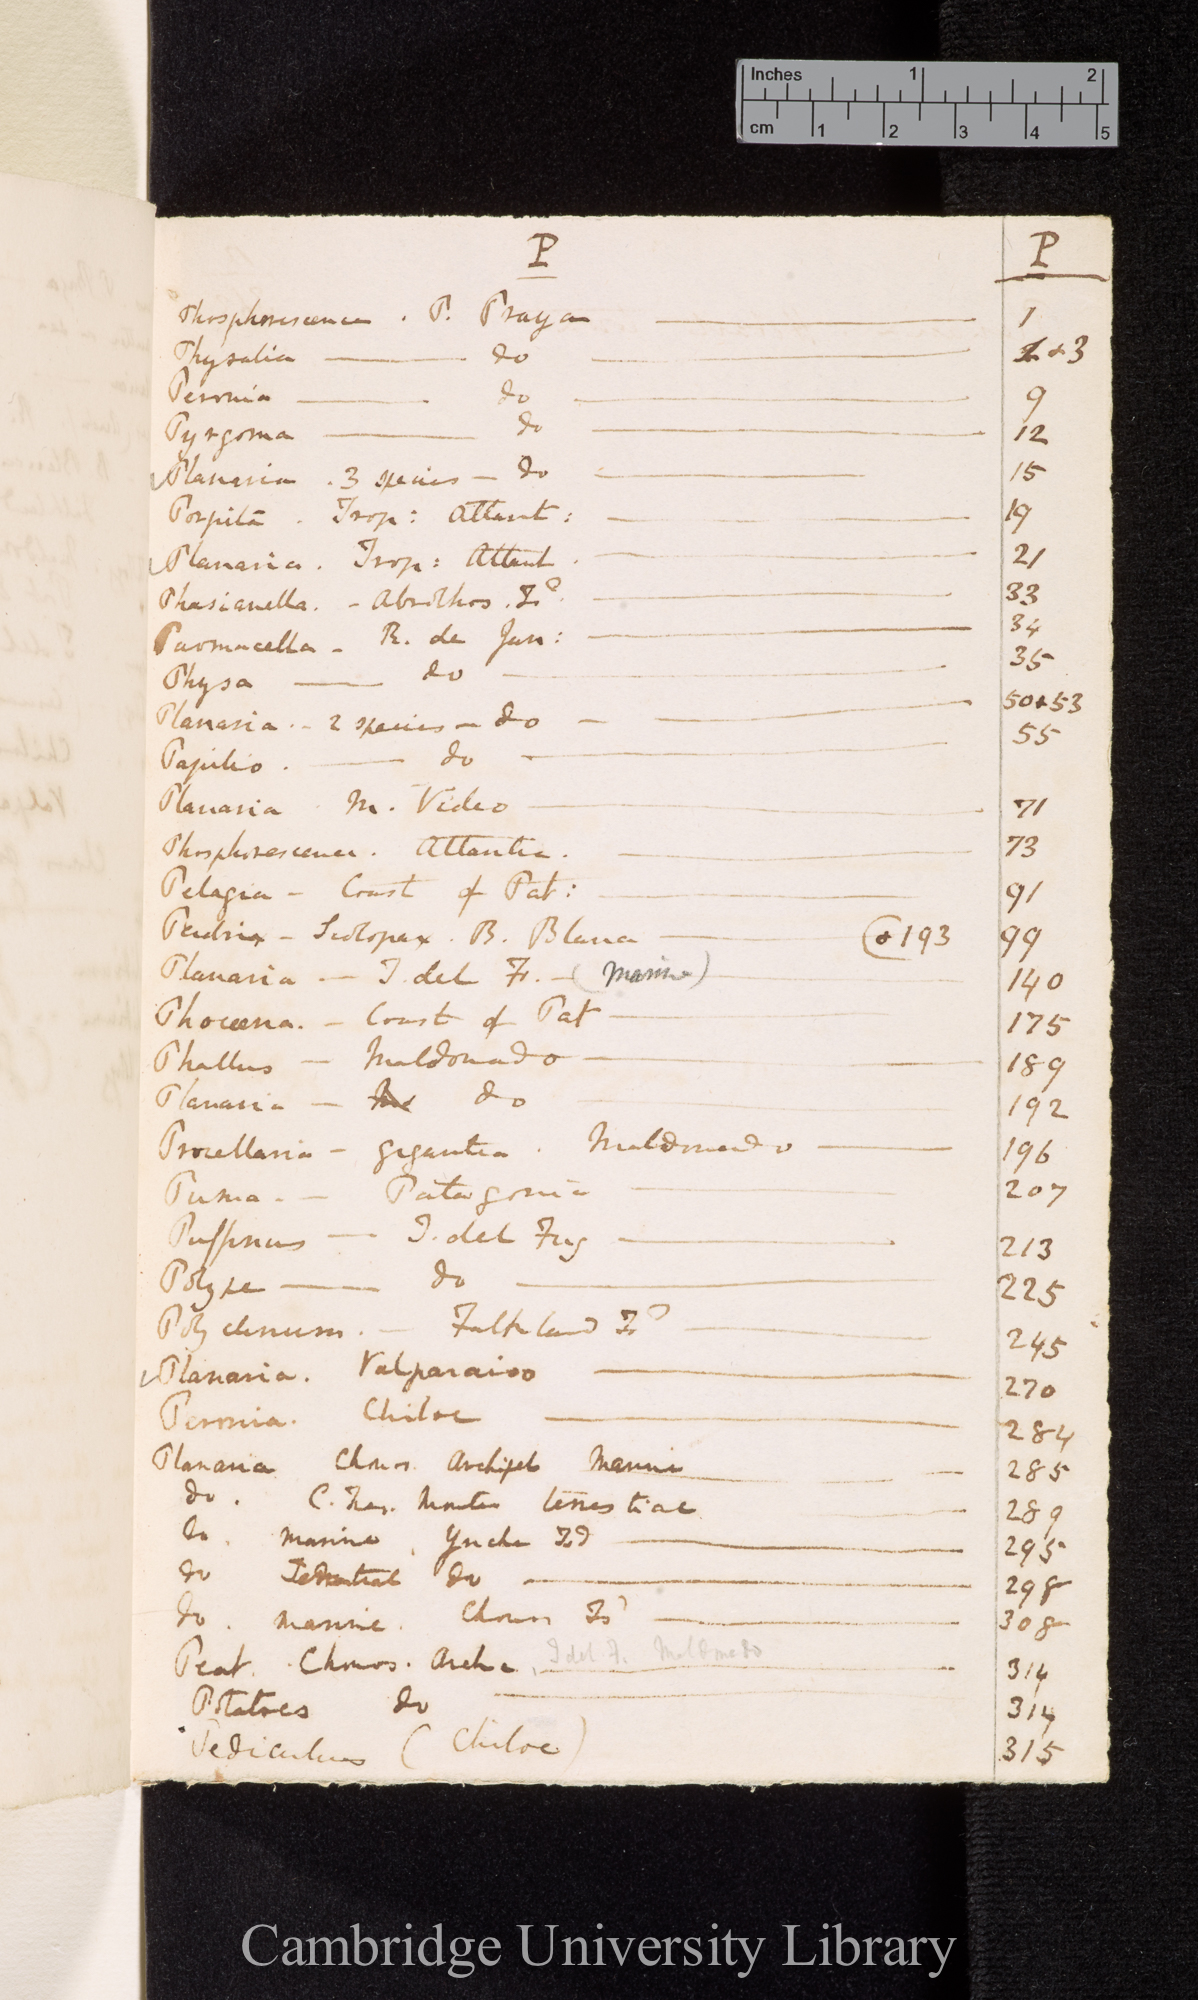 Inches 1 2
cm 1 2 3 4 5
P P
Phosphorescence . P. Praya 1
Physalia do 1 + 3
Peronia do 9
Pyrgoma do 12
Planaria . 3 species — do 15
Porpita . Trop: Atlant: 19
Planaria . Trop: Atlant . 21
Phasianella . - Abrolhos . Is. 33
Parmacella - R. de Jan: 34
Physa do 35
Planaria . - 2 species — do 50 + 53
Papilio . do 55
Planaria M. Video 71
Phosphorescence . Atlantic . 73
Pelagia - Coast of Pat: 91
Perdrix - Scolopax . B. Blanca (+ 193 99
Planaria — T. del F. - (marine) 140
Phocœna . - Coast of Pat 175
Phallus — Maldonado 189
Planaria — do 192
Procellaria - gigantea . Maldonado 196
Puma . — Patagonia 207
Puffinus — T. del Fug 213
Polype do 225
Polyclinum . — Falkland Is 245
Planaria . Valparaiso 270
Peronia . Chiloe 284
Planaria Chonos Archipel Marine 285
do . C. Tres Montes terrestiae 289
do . marine . Ynche Isd 295
do Terrestrial do 298
do . marine . Chonos Is 308
Peat . Chonos . Arch . T del F. Maldonado 314
Potatoes do 314
Pediculus (Chiloe) 315
Cambridge University Library